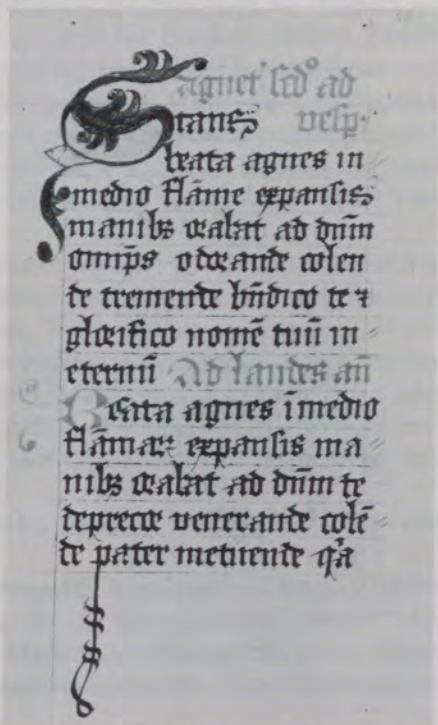 agnet' scd̄o ad
Stans vesp.
beata agnes in
medio flāme expansis
manibꝫ orabat ad dn̄m
omīps odorande colen
de tremende bn̄dico te ⁊
glorifico nomē tuū in
eternū Ad laudes an̄
Beata agnes ī medio
flāmaꝝ expansis ma
nibꝫ orabat ad dn̄m te
deprecor venerande colē
de pater metuende qͥa